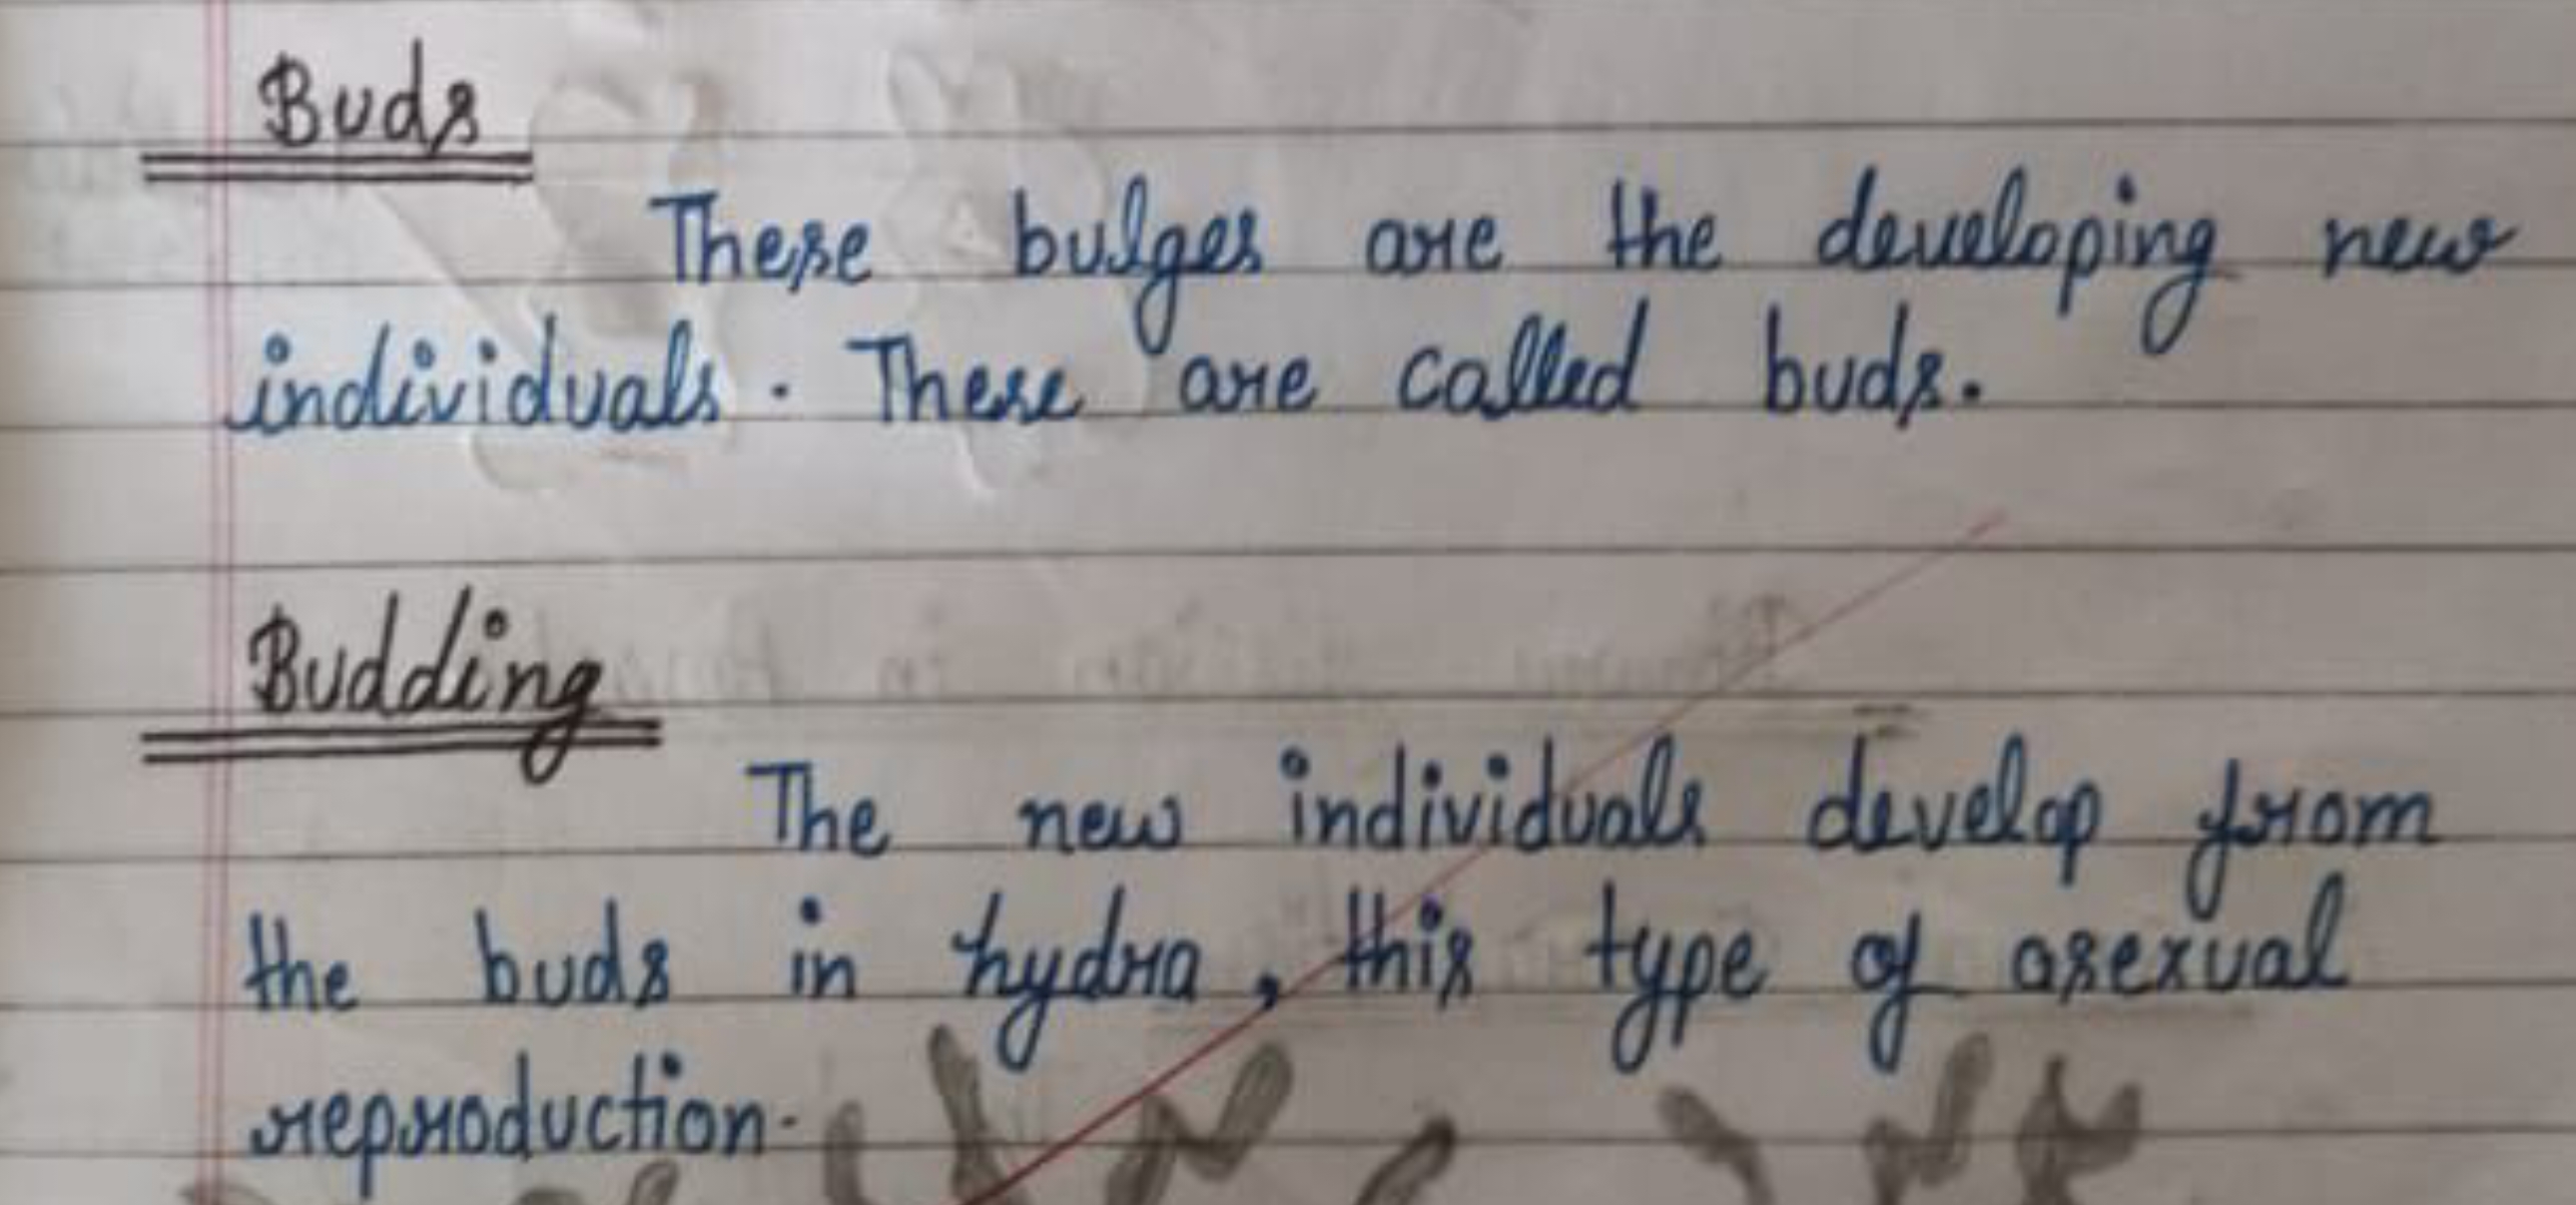 Buds
These bulges are the developing new
individuals. These are called buds.
Budding
The new individuals develop from
the buds in hydra, this type of asexual
reproduction.